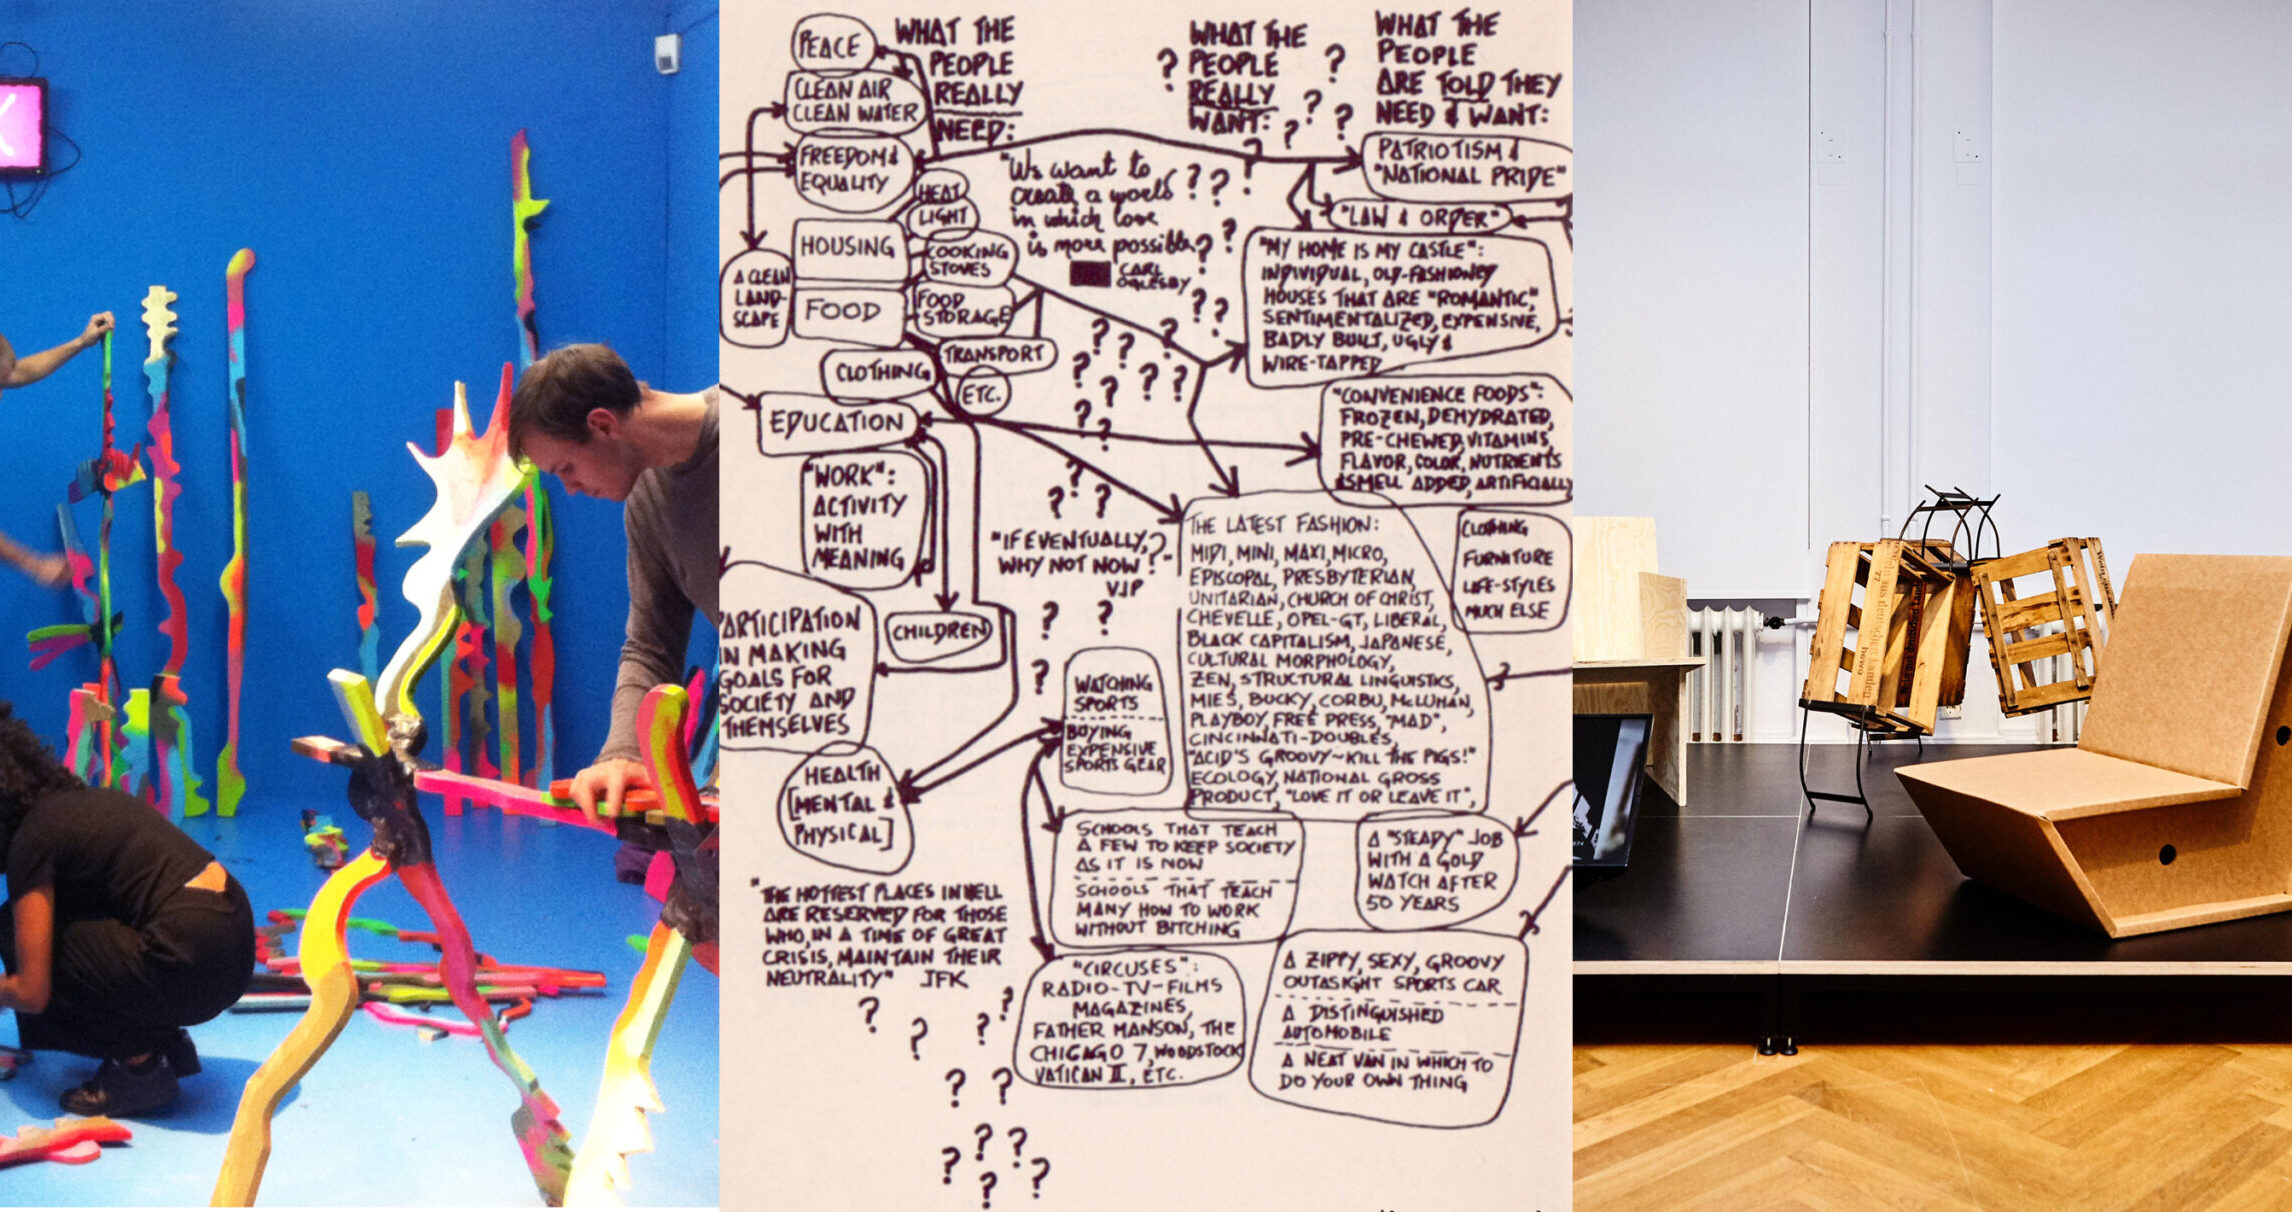 X
PEACE
CLEAN AIR
CLEAN WATER
FREEDOM &
EQUALITY
HEAT
LIGHT
HOUSING
COOKING
STOVES
A CLEAN
LAND-
SCAPE
FOOD
FOOD
STORAGE
TRANSPORT
CLOTHING
ETC.
EDUCATION
"WORK":
ACTIVITY
WITH
MEANING
CHILDREN
PARTICIPATION
IN MAKING
GOALS FOR
SOCIETY AND
THEMSELVES
HEALTH
[MENTAL &
PHYSICAL]
"THE HOTTEST PLACES IN HELL
ARE RESERVED FOR THOSE
WHO, IN A TIME OF GREAT
CRISIS, MAINTAIN THEIR
NEUTRALITY" JFK
WHAT THE
PEOPLE
REALLY
NEED:
"We want to
create a world
in which love
is more possible"
CARL
OGLESBY
"IF EVENTUALLY,
WHY NOT NOW?"-
VJP
WHAT THE
PEOPLE
REALLY
WANT:
WATCHING
SPORTS
BUYING
EXPENSIVE
SPORTS GEAR
SCHOOLS THAT TEACH
A FEW TO KEEP SOCIETY
AS IT IS NOW
SCHOOLS THAT TEACH
MANY HOW TO WORK
WITHOUT BITCHING
"CIRCUSES":
RADIO-TV-FILMS
MAGAZINES,
FATHER MANSON, THE
CHICAGO 7, WOODSTOCK
VATICAN II, ETC.
WHAT THE
PEOPLE
ARE TOLD THEY
NEED & WANT:
PATRIOTISM &
"NATIONAL PRIDE"
"LAW & ORDER"
"MY HOME IS MY CASTLE":
INDIVIDUAL, OLD-FASHIONEY
HOUSES THAT ARE "ROMANTIC",
SENTIMENTALIZED, EXPENSIVE,
BADLY BUILT, UGLY &
WIRE-TAPPED
"CONVENIENCE FOODS":
FROZEN, DEHYDRATED,
PRE-CHEWED, VITAMINS,
FLAVOR, COLOR, NUTRIENTS
& SMELL ADDED, ARTIFICIALLY
THE LATEST FASHION:
MIDI, MINI, MAXI, MICRO,
EPISCOPAL, PRESBYTERIAN,
UNITARIAN, CHURCH OF CHRIST,
CHEVELLE, OPEL-GT, LIBERAL,
BLACK CAPITALISM, JAPANESE,
CULTURAL MORPHOLOGY,
ZEN, STRUCTURAL LINGUISTICS,
MIES, BUCKY, CORBU, McLUHAN,
PLAYBOY, FREE PRESS, "MAD",
CINCINNATI-DOUBLES,
"ACID'S GROOVY~KILL THE PIGS!"
ECOLOGY, NATIONAL GROSS
PRODUCT, "LOVE IT OR LEAVE IT",
CLOTHING
FURNITURE
LIFE-STYLES
MUCH ELSE
A "STEADY" JOB
WITH A GOLD
WATCH AFTER
50 YEARS
A ZIPPY, SEXY, GROOVY
OUTASIGHT SPORTS CAR
A DISTINGUISHED
AUTOMOBILE
A NEAT VAN IN WHICH TO
DO YOUR OWN THING